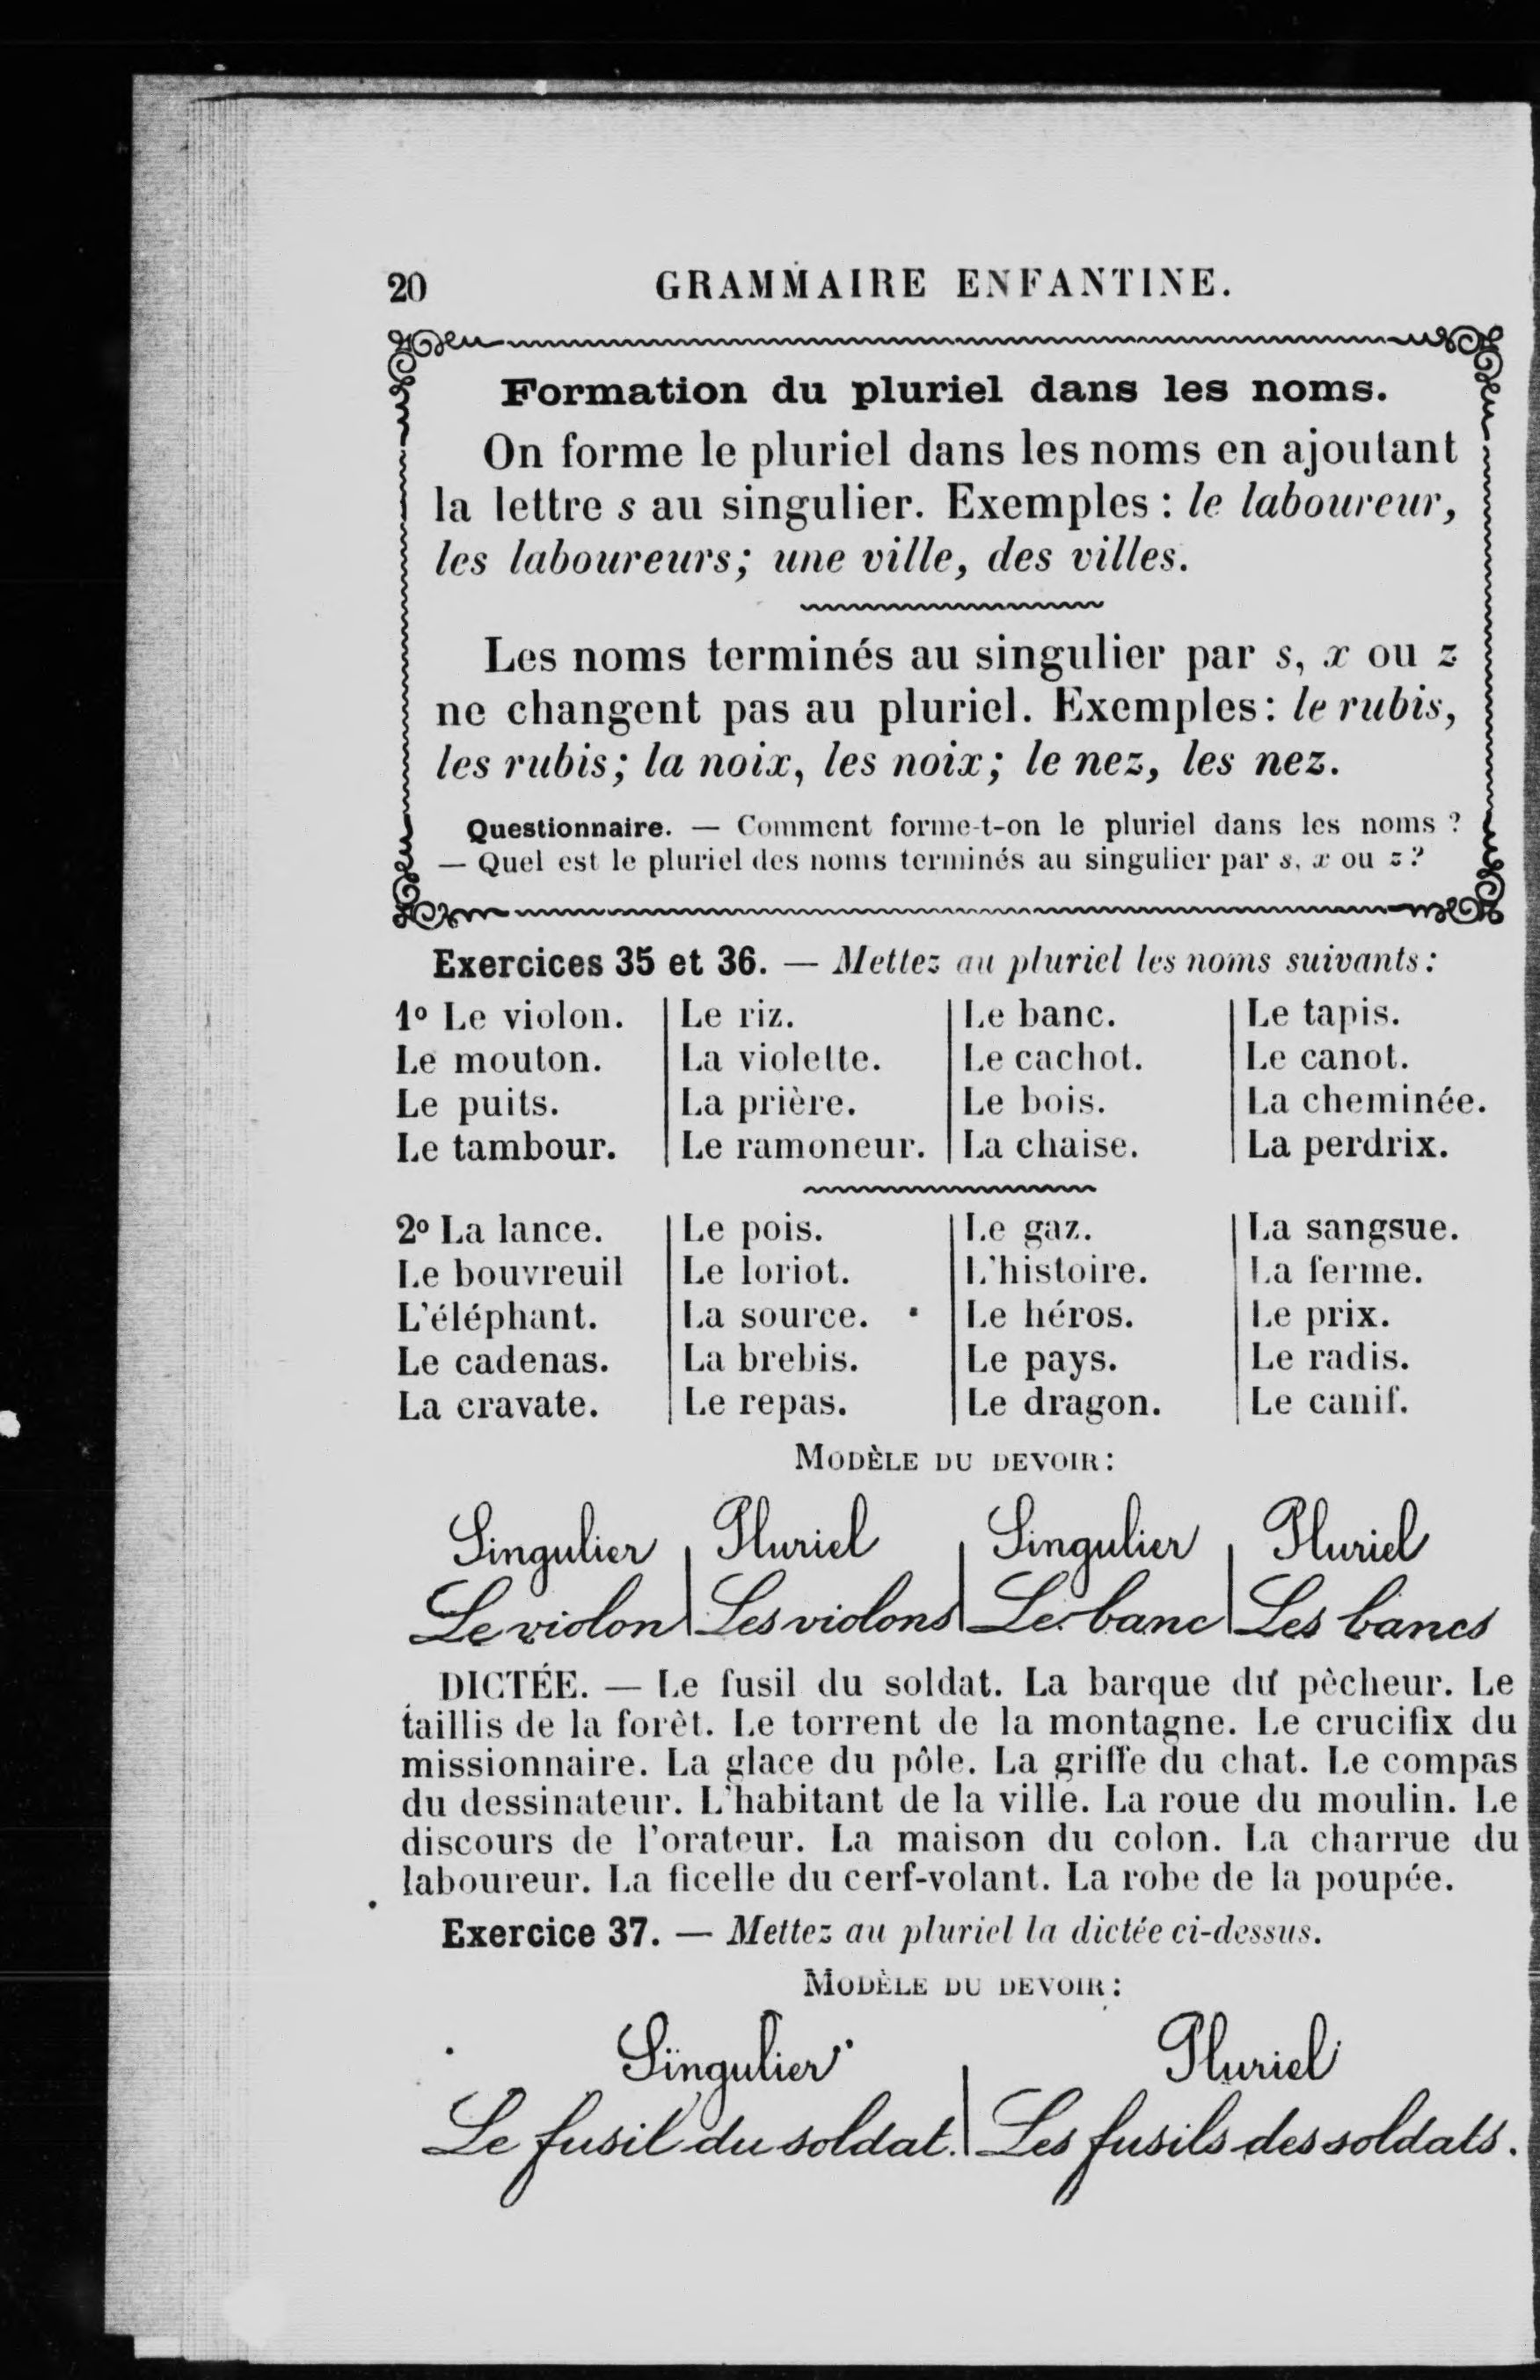 20 GRAMMAIRE ENFANTINE.
Formation du pluriel dans les noms.
On forme le pluriel dans les noms en ajoutant
la lettre s au singulier. Exemples : le laboureur,
les laboureurs; une ville, des villes.
Les noms terminés au singulier par s, x ou z
ne changent pas au pluriel. Exemples: le rubis,
les rubis; la noix, les noix; le nez, les nez.
Questionnaire. — Comment forme-t-on le pluriel dans les noms ?
— Quel est le pluriel des noms terminés au singulier par s, x ou z ?
Exercices 35 et 36. — Mettez au pluriel les noms suivants :
1º Le violon. Le riz. Le banc. Le tapis.
Le mouton. La violette. Le cachot. Le canot.
Le puits. La prière. Le bois. La cheminée.
Le tambour. Le ramoneur. La chaise. La perdrix.
2º La lance. Le pois. Le gaz. La sangsue.
Le bouvreuil Le loriot. L'histoire. La ferme.
L'éléphant. La source. Le héros. Le prix.
Le cadenas. La brebis. Le pays. Le radis.
La cravate. Le repas. Le dragon. Le canif.
MODÈLE DU DEVOIR :
Singulier Pluriel Singulier Pluriel
Le violon Les violons Le banc Les bancs
DICTÉE. — Le fusil du soldat. La barque du pêcheur. Le
taillis de la forêt. Le torrent de la montagne. Le crucifix du
missionnaire. La glace du pôle. La griffe du chat. Le compas
du dessinateur. L'habitant de la ville. La roue du moulin. Le
discours de l'orateur. La maison du colon. La charrue du
laboureur. La ficelle du cerf-volant. La robe de la poupée.
Exercice 37. — Mettez au pluriel la dictée ci-dessus.
MODÈLE DU DEVOIR :
Singulier Pluriel
Le fusil du soldat. Les fusils des soldats.